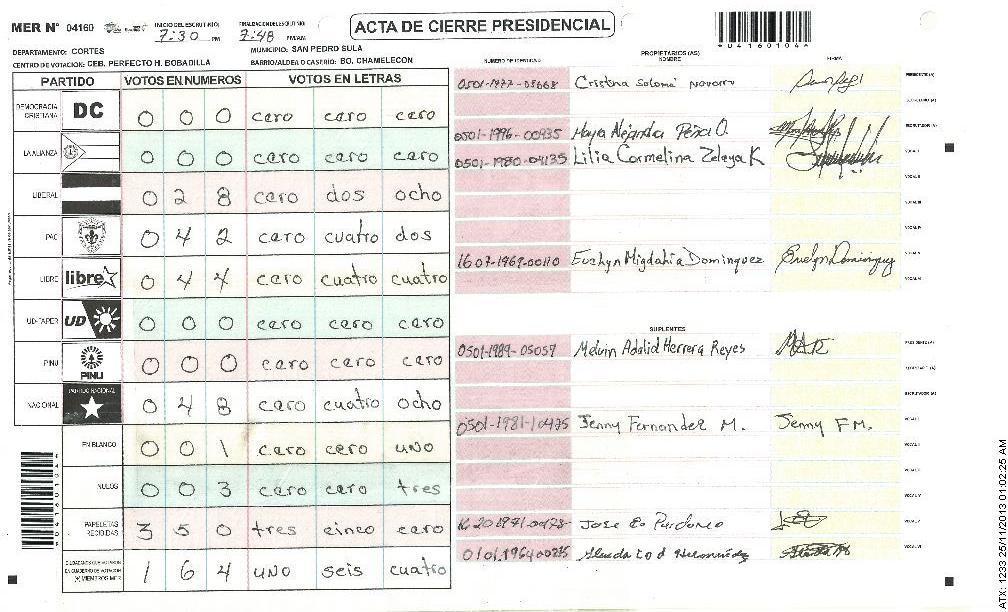 MER N° 04160 INICIO DEL ESCRUTINIO: 7:30 PM FINALIZACION ESCRUTINIO: 7:48 PM/AM
ACTA DE CIERRE PRESIDENCIAL
*04160104*
DEPARTAMENTO: CORTES MUNICIPIO: SAN PEDRO SULA
CENTRO DE VOTACION: CEB. PERFECTO H. BOBADILLA BARRIO/ALDEA O CASERIO: BO. CHAMELECON
PARTIDO VOTOS EN NUMEROS VOTOS EN LETRAS
DEMOCRACIA CRISTIANA DC 0 0 0 cero cero cero
LA ALIANZA 0 0 0 cero cero cero
LIBERAL 0 2 8 cero dos ocho
PAC 0 4 2 cero cuatro dos
LIBRE libre 0 4 4 cero cuatro cuatro
UD-FAPER UD 0 0 0 cero cero cero
PINU PINU 0 0 0 cero cero cero
NACIONAL PARTIDO NACIONAL 0 4 8 cero cuatro ocho
EN BLANCO 0 0 1 cero cero uno
NULOS 0 0 3 cero cero tres
PAPELETAS RECIBIDAS 3 5 0 tres cinco cero
CIUDADANOS QUE VOTARON EN CUADERNO DE VOTACION (+) MIEMBROS MER 1 6 4 uno seis cuatro
NUMERO DE IDENTIDAD PROPIETARIOS (AS) NOMBRE FIRMA
0501-1977-08668 Cristina Salomé Navarro PRESIDENTE (A)
SECRETARIO (A)
0501-1996-00935 Maya Alejandra Peña O. ESCRUTADOR (A)
0501-1980-04135 Lilia Carmelina Zelaya K VOCAL I
VOCAL II
VOCAL III
VOCAL IV
1607-1969-00110 Evelyn Migdahia Dominguez Evelyn Dominguez VOCAL V
VOCAL VI
SUPLENTES
0501-1989-05059 Melvin Adalid Herrera Reyes PRESIDENTE (A)
SECRETARIO (A)
ESCRUTADOR (A)
0501-1981-10475 Jenny Fernandez M. Jenny F M. VOCAL I
VOCAL II
VOCAL III
VOCAL IV
Jose VOCAL V
VOCAL VI
ATX: 1233 25/11/2013 01:02:25 AM